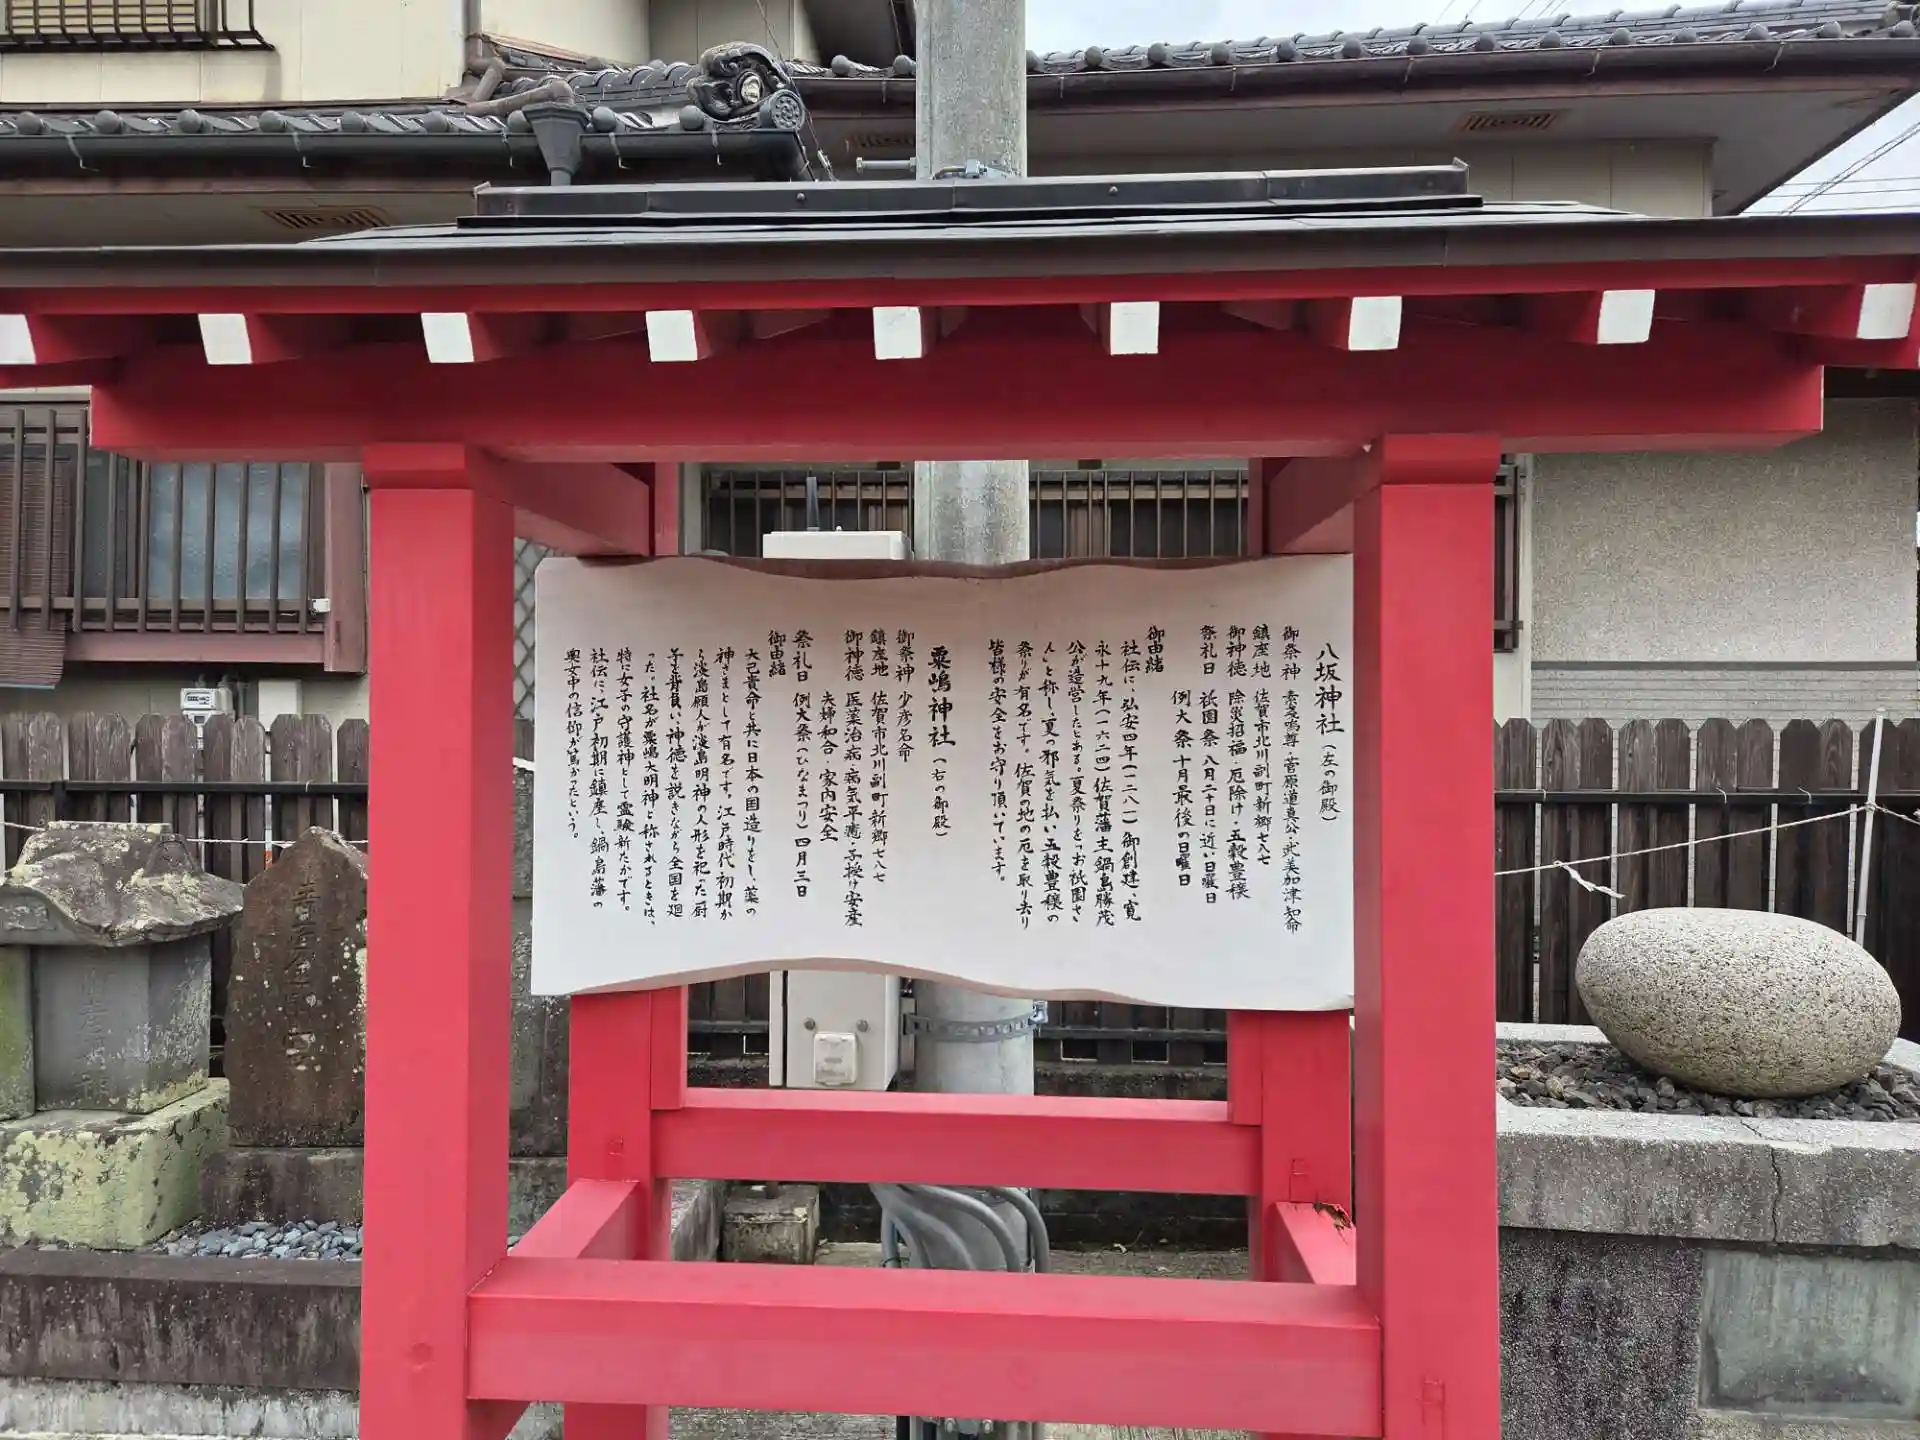 八坂神社（左の御殿）
御祭神 素戔嗚尊・菅原道真公・武美加津知命
鎮座地 佐賀市北川副町新郷七八七
御神徳 除災招福・厄除け・五穀豊穣
祭礼日 祇園祭 八月二十日に近い日曜日
例大祭 十月最後の日曜日
御由緒
社伝に、弘安四年（一二八一）御創建、寛
永十九年（一六二四）佐賀藩主鍋島勝茂
公が造営したとある。夏祭りを「お祇園さ
ん」と称し、夏の邪気を払い五穀豊穣の
祭りが有名です。佐賀の地の厄を取り去り
皆様の安全をお守り頂いています。
粟嶋神社（右の御殿）
御祭神 少彦名命
鎮座地 佐賀市北川副町新郷七八七
御神徳 医薬治病・病気平癒・子授け安産
夫婦和合・家内安全
祭礼日 例大祭（ひなまつり）四月三日
御由緒
大己貴命と共に日本の国造りをし、薬の
神さまとして有名です。江戸時代初期か
ら淡島願人が淡島明神の人形を祀った厨
子を背負い、神徳を説きながら全国を廻
った。社名が粟嶋大明神と称されるときは、
特に女子の守護神として霊験新たかです。
社伝に、江戸初期に鎮座し、鍋島藩の
奥女中の信仰が篤かったという。